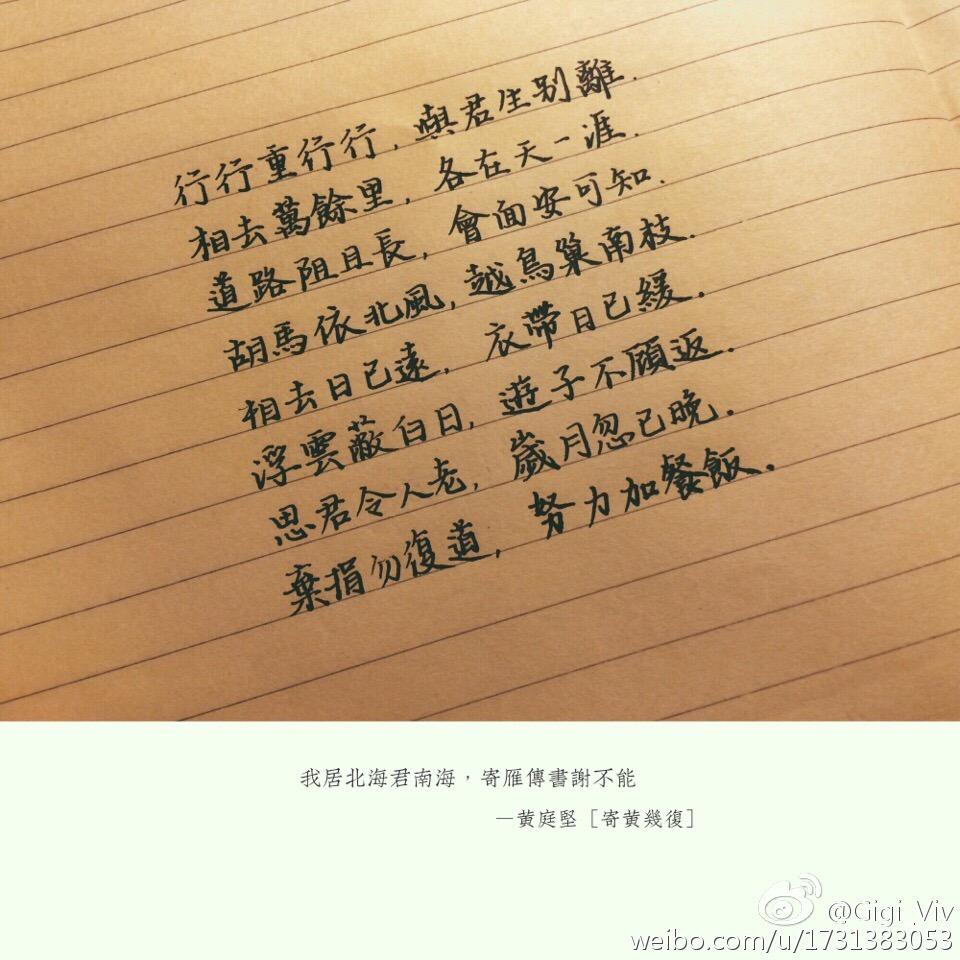 行行重行行，與君生别離．
相去萬餘里，各在天一涯．
道路阻且長，會面安可知．
胡馬依北風，越鳥巢南枝．
相去日已遠，衣帶日已緩．
浮雲蔽白日，遊子不顧返．
思君令人老，歲月忽已晚．
棄捐勿復道，努力加餐飯．
我居北海君南海，寄雁傳書謝不能
—黄庭堅［寄黄幾復］
@Gigi_Viv
weibo.com/u/1731383053